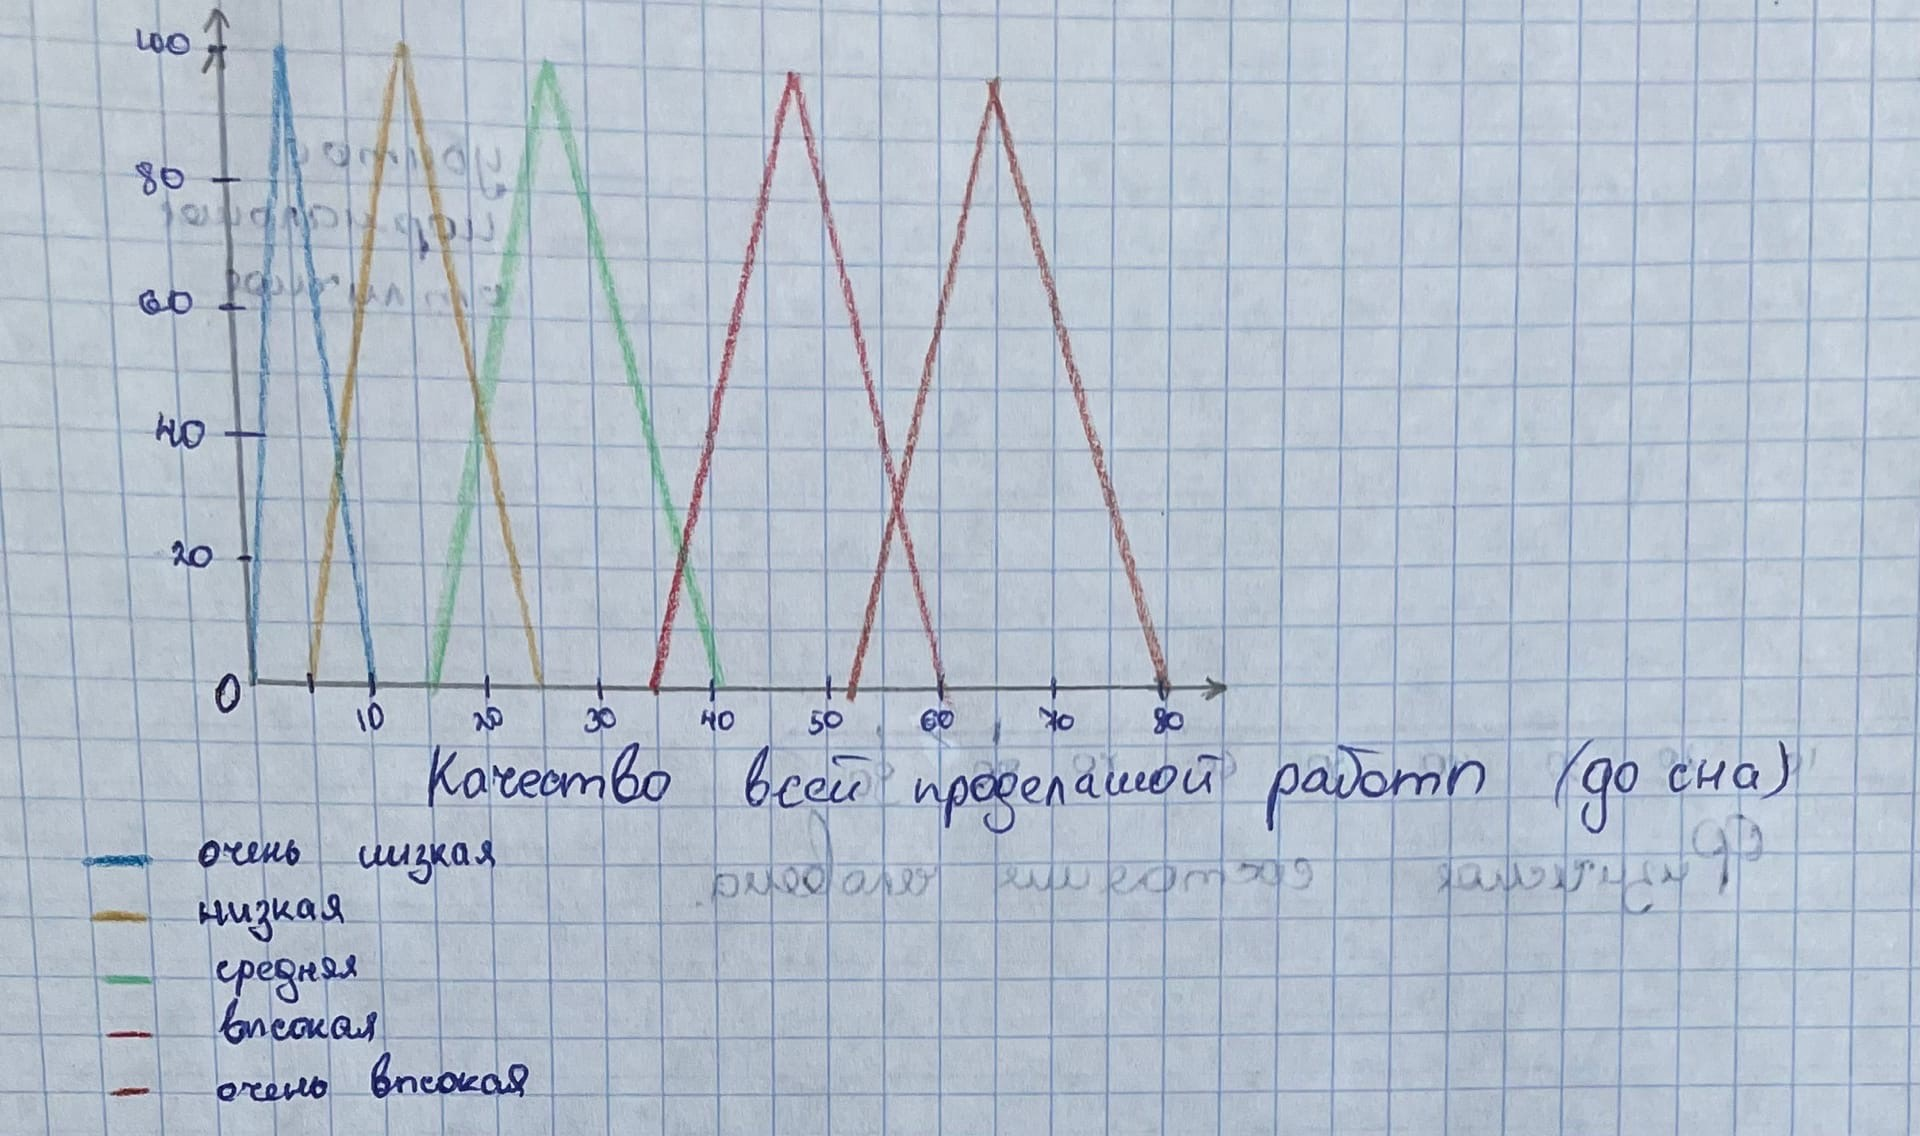 100
80
60
40
20
0
10 20 30 40 50 60 70 80
Качество всей проделанной работы (до сна)
очень низкая
низкая
средняя
высокая
очень высокая